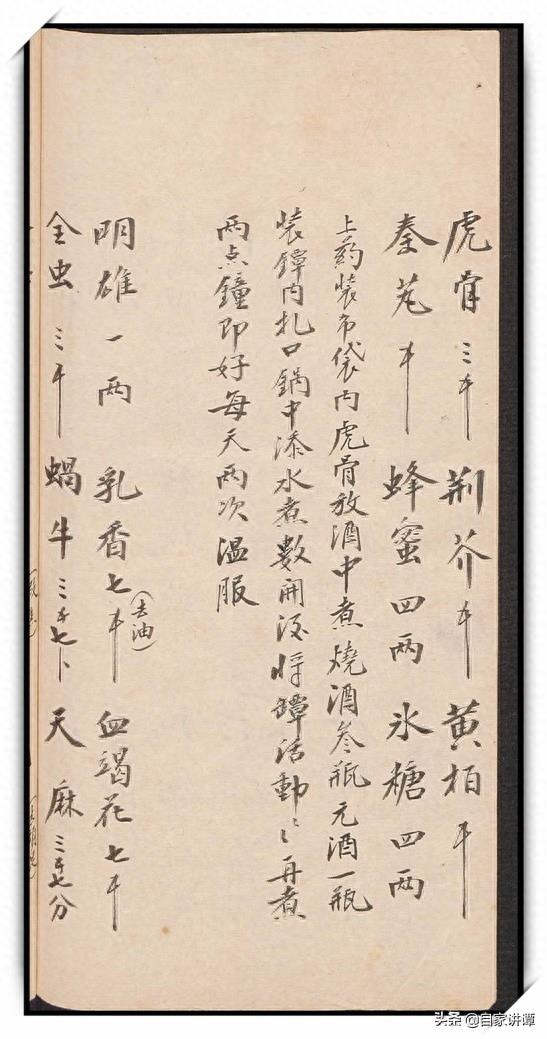 虎骨三钱 荆芥钱 黄柏钱
秦艽钱 蜂蜜四两 氷糖四两
上药装布袋内虎骨放酒中煮烧酒叁瓶元酒一瓶
装罈内扎口锅中添水煮數开后将罈活動々再煮
两点鐘即好每天两次温服
明雄一两 乳香七钱(去油) 血竭花七钱
全虫三钱 蝸牛三钱七卜 天麻三钱七分
头条 @自家讲谭